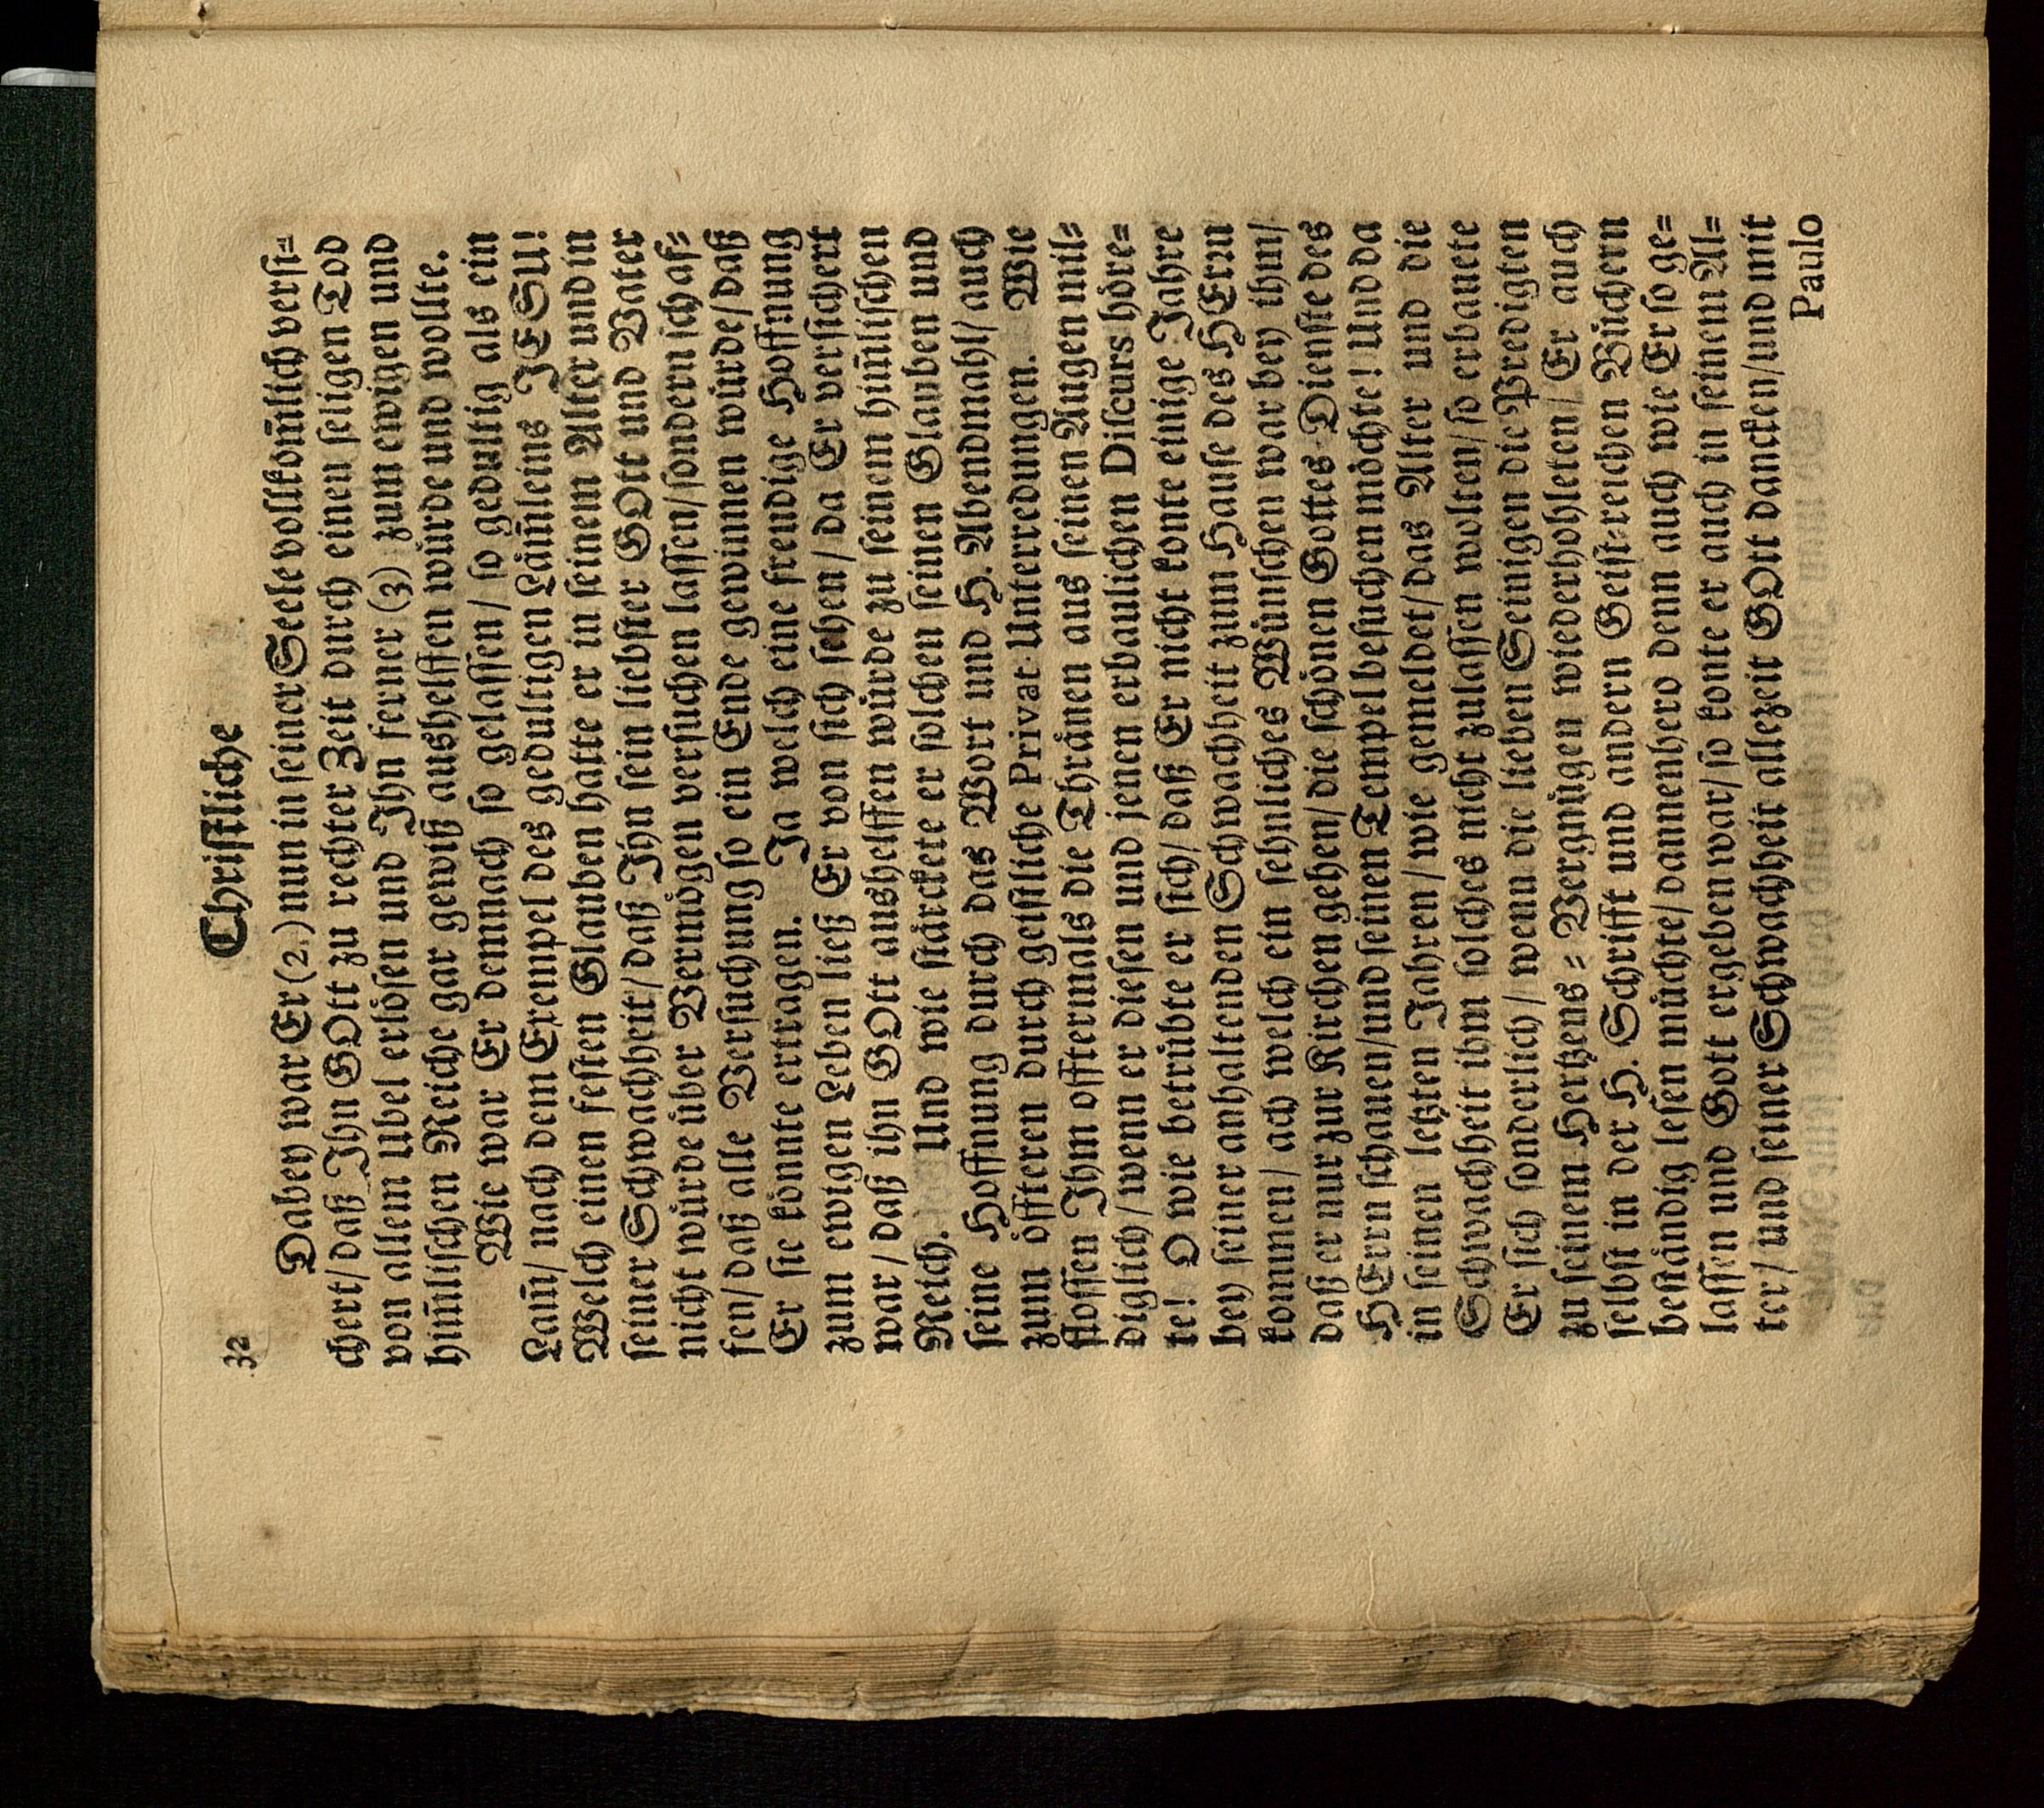 32 Christliche
Dabey war Er (2.) nun in seiner Seele vollkom̅lich versi⸗
chert/ daß Ihn GOtt zu rechter Zeit durch einen seligen Tod
von allem Ubel erlösen und Ihn ferner (3) zum ewigen und
him̅lischen Reiche gar gewiß aushelffen würde und wollte.
Wie war Er demnach so gelassen/ so gedultig als ein
Lam̅/ nach dem Exempel des gedultigen Läm̅leins JESU!
Welch einen festen Glauben hatte er in seinem Alter und in
seiner Schwachheit/ daß Ihn sein liebster GOtt und Vater
nicht würde über Vermögen versuchen lassen/ sondern schaf⸗
fen/ daß alle Versuchung so ein Ende gewinnen würde/ daß
Er sie könnte ertragen. Ja welch eine freudige Hoffnung
zum ewigen Leben ließ Er von sich sehen/ da Er versichert
war/ daß ihn GOtt aushelffen würde zu seinem him̅lischen
Reich. Und wie stärckete er solchen seinen Glauben und
seine Hoffnung durch das Wort und H. Abendmahl/ auch
zum öffteren durch geistliche Privat-Unterredungen. Wie
flossen Ihm offtermals die Thränen aus seinen Augen mil⸗
diglich/ wenn er diesen und jenen erbaulichen Discurs höre⸗
te! O wie betrübte er sich/ daß Er nicht konte einige Jahre
bey seiner anhaltenden Schwachheit zum Hause des HErrn
kommen/ ach welch ein sehnliches Wünschen war bey ihm/
daß er nur zur Kirchen gehen/ die schönen Gottes-Dienste des
HErrn schauen/ und seinen Tempel besuchen möchte! Und da
in seinen letzten Jahren/ wie gemeldet/ das Alter und die
Schwachheit ihm solches nicht zulassen wolten/ so erbauete
Er sich sonderlich/ wenn die lieben Seinigen die Predigten
zu seinem Hertzens⸗Vergnügen wiederhohleten/ Er auch
selbst in der H. Schrifft und andern Geist⸗reichen Büchern
beständig lesen müchte/ dannenhero denn auch wie Er so ge⸗
lassen und Gott ergeben war/ so konte er auch in seinem Al⸗
ter/ und seiner Schwachheit allezeit GOtt dancken/ und mit
Paulo